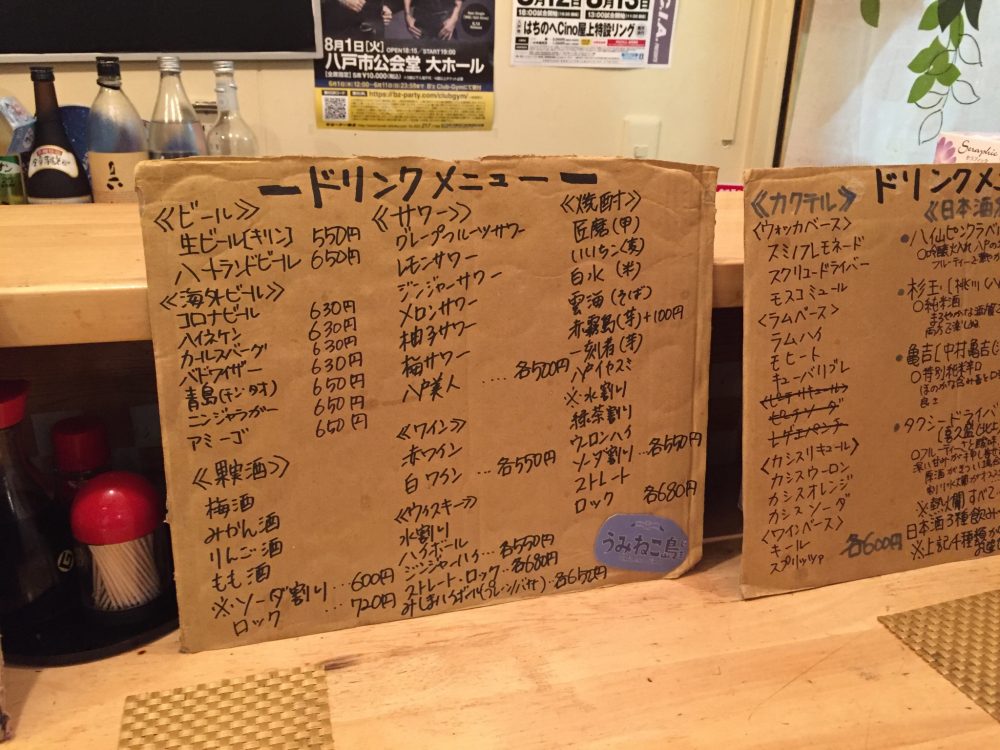 8月1日[火] OPEN18:15 / START19:00
八戸市公会堂 大ホール
https://bz-party.com/clubgym/
18:00試合開始
13:00試合開始
はちのへCino屋上特設リング
Seraphie
ードリンクメニューー
《ビール》
生ビール[キリン] 550円
ハートランドビール 650円
《海外ビール》
コロナビール 630円
ハイネケン 630円
カールスバーグ 630円
バドワイザー 630円
青島(チンタオ) 650円
ニンジャラガー 650円
アミーゴ 650円
《果実酒》
梅酒
みかん酒
りんご酒
もも酒
※・ソーダ割り…600円
ロック …720円
《サワー》
グレープフルーツサワー
レモンサワー
ジンジャーサワー
メロンサワー
柚子サワー
梅サワー
八戸美人 ‥‥各500円
《ワイン》
赤ワイン
白ワイン …各550円
《ウィスキー》
水割り
ハイボール
ジンジャーハイ…各550円
ストレート・ロック…各680円
…各650円
《焼酎》
匠磨(甲)
いいちこ(麦)
白水(米)
雲海(そば)
赤霧島(芋)+100円
一刻者(芋)
八戸イヤスミ
※水割り
緑茶割り
ウーロンハイ
ソーダ割り…各550円
ストレート
ロック 各680円
うみねこ島
ドリンクメ
《カクテル》
<ウォッカベース>
スミノフレモネード
スクリュードライバー
モスコミュール
<ラムベース>
ラムハイ
モヒート
キューバリブレ
<ピーチリキュール>
ピーチソーダ
レゲエパンチ
<カシスリキュール>
カシスウーロン
カシスオレンジ
カシスソーダ
<ワインベース>
キール
スプリッツァ 各600円
《日本酒
●八仙ピンクラベ
フルーティーで華やか
●杉玉[桃川(ハ
○純米酒
●亀吉[中村亀吉
○特別純米辛口
●タクシードライバ
※熱燗すべて
日本酒3種飲み
※上記4種類か